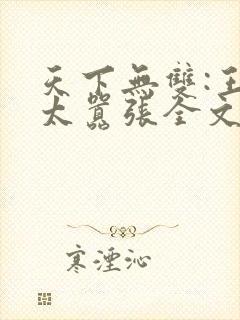 天下無雙:王
太囂張全文
寒湮沁